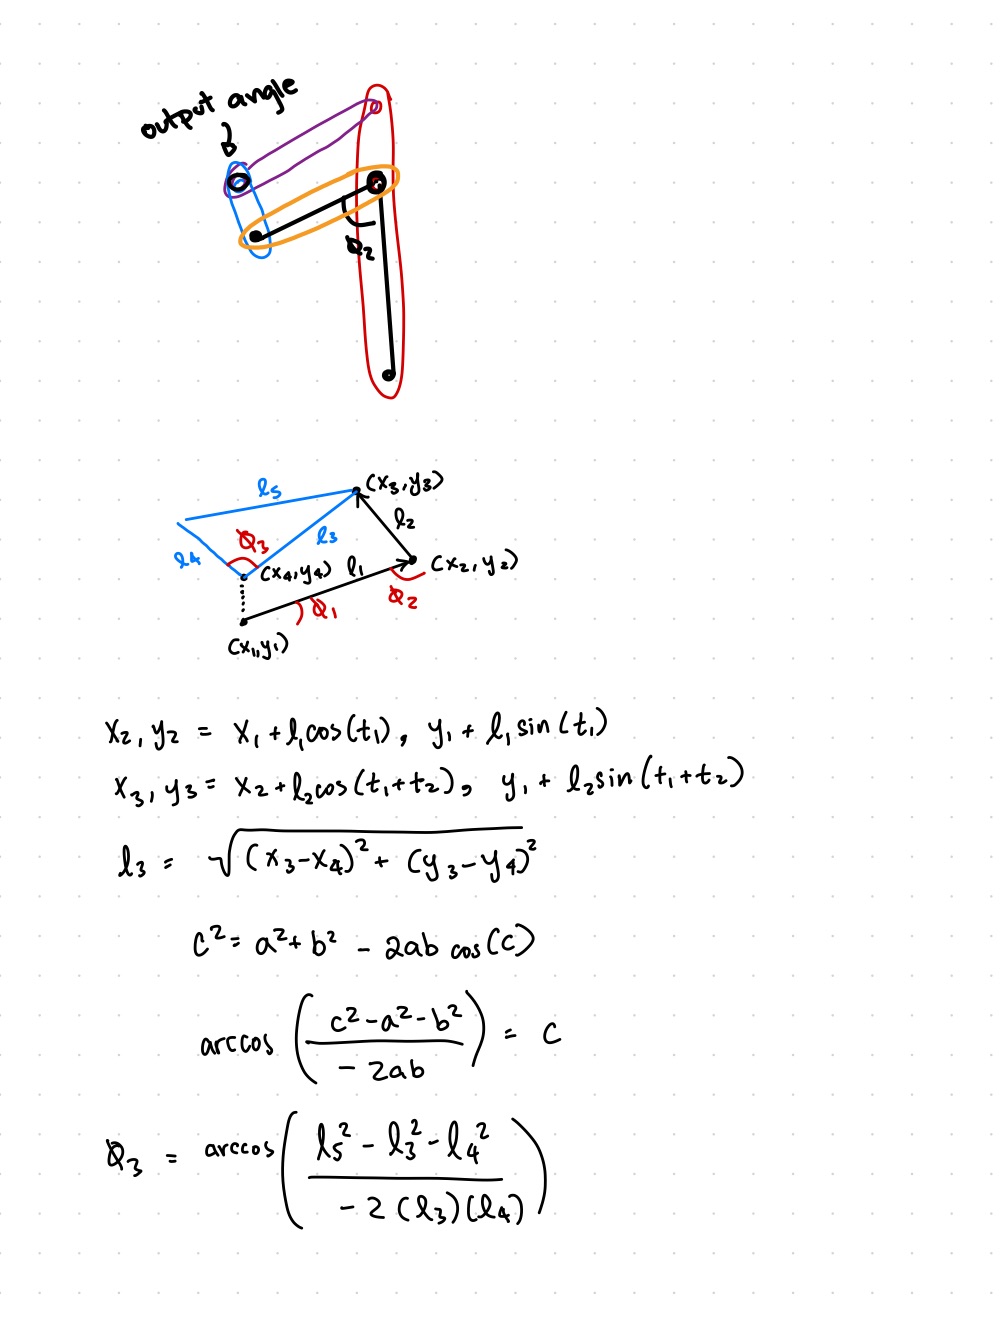 output angle
Φ₂
l₅
(x₃,y₃)
l₂
Φ₃
l₃
l₄
(x₄,y₄)
l₁
(x₂,y₂)
Φ₂
Φ₁
(x₁,y₁)
x₂,y₂ = x₁+l₁cos(t₁), y₁+l₁sin(t₁)
x₃,y₃ = x₂+l₂cos(t₁+t₂), y₁+l₂sin(t₁+t₂)
l₃ = √((x₃-x₄)²+(y₃-y₄)²)
c²=a²+b²-2ab cos(C)
arccos((c²-a²-b²)/(-2ab)) = C
Φ₃ = arccos((l₅²-l₃²-l₄²)/(-2(l₃)(l₄)))